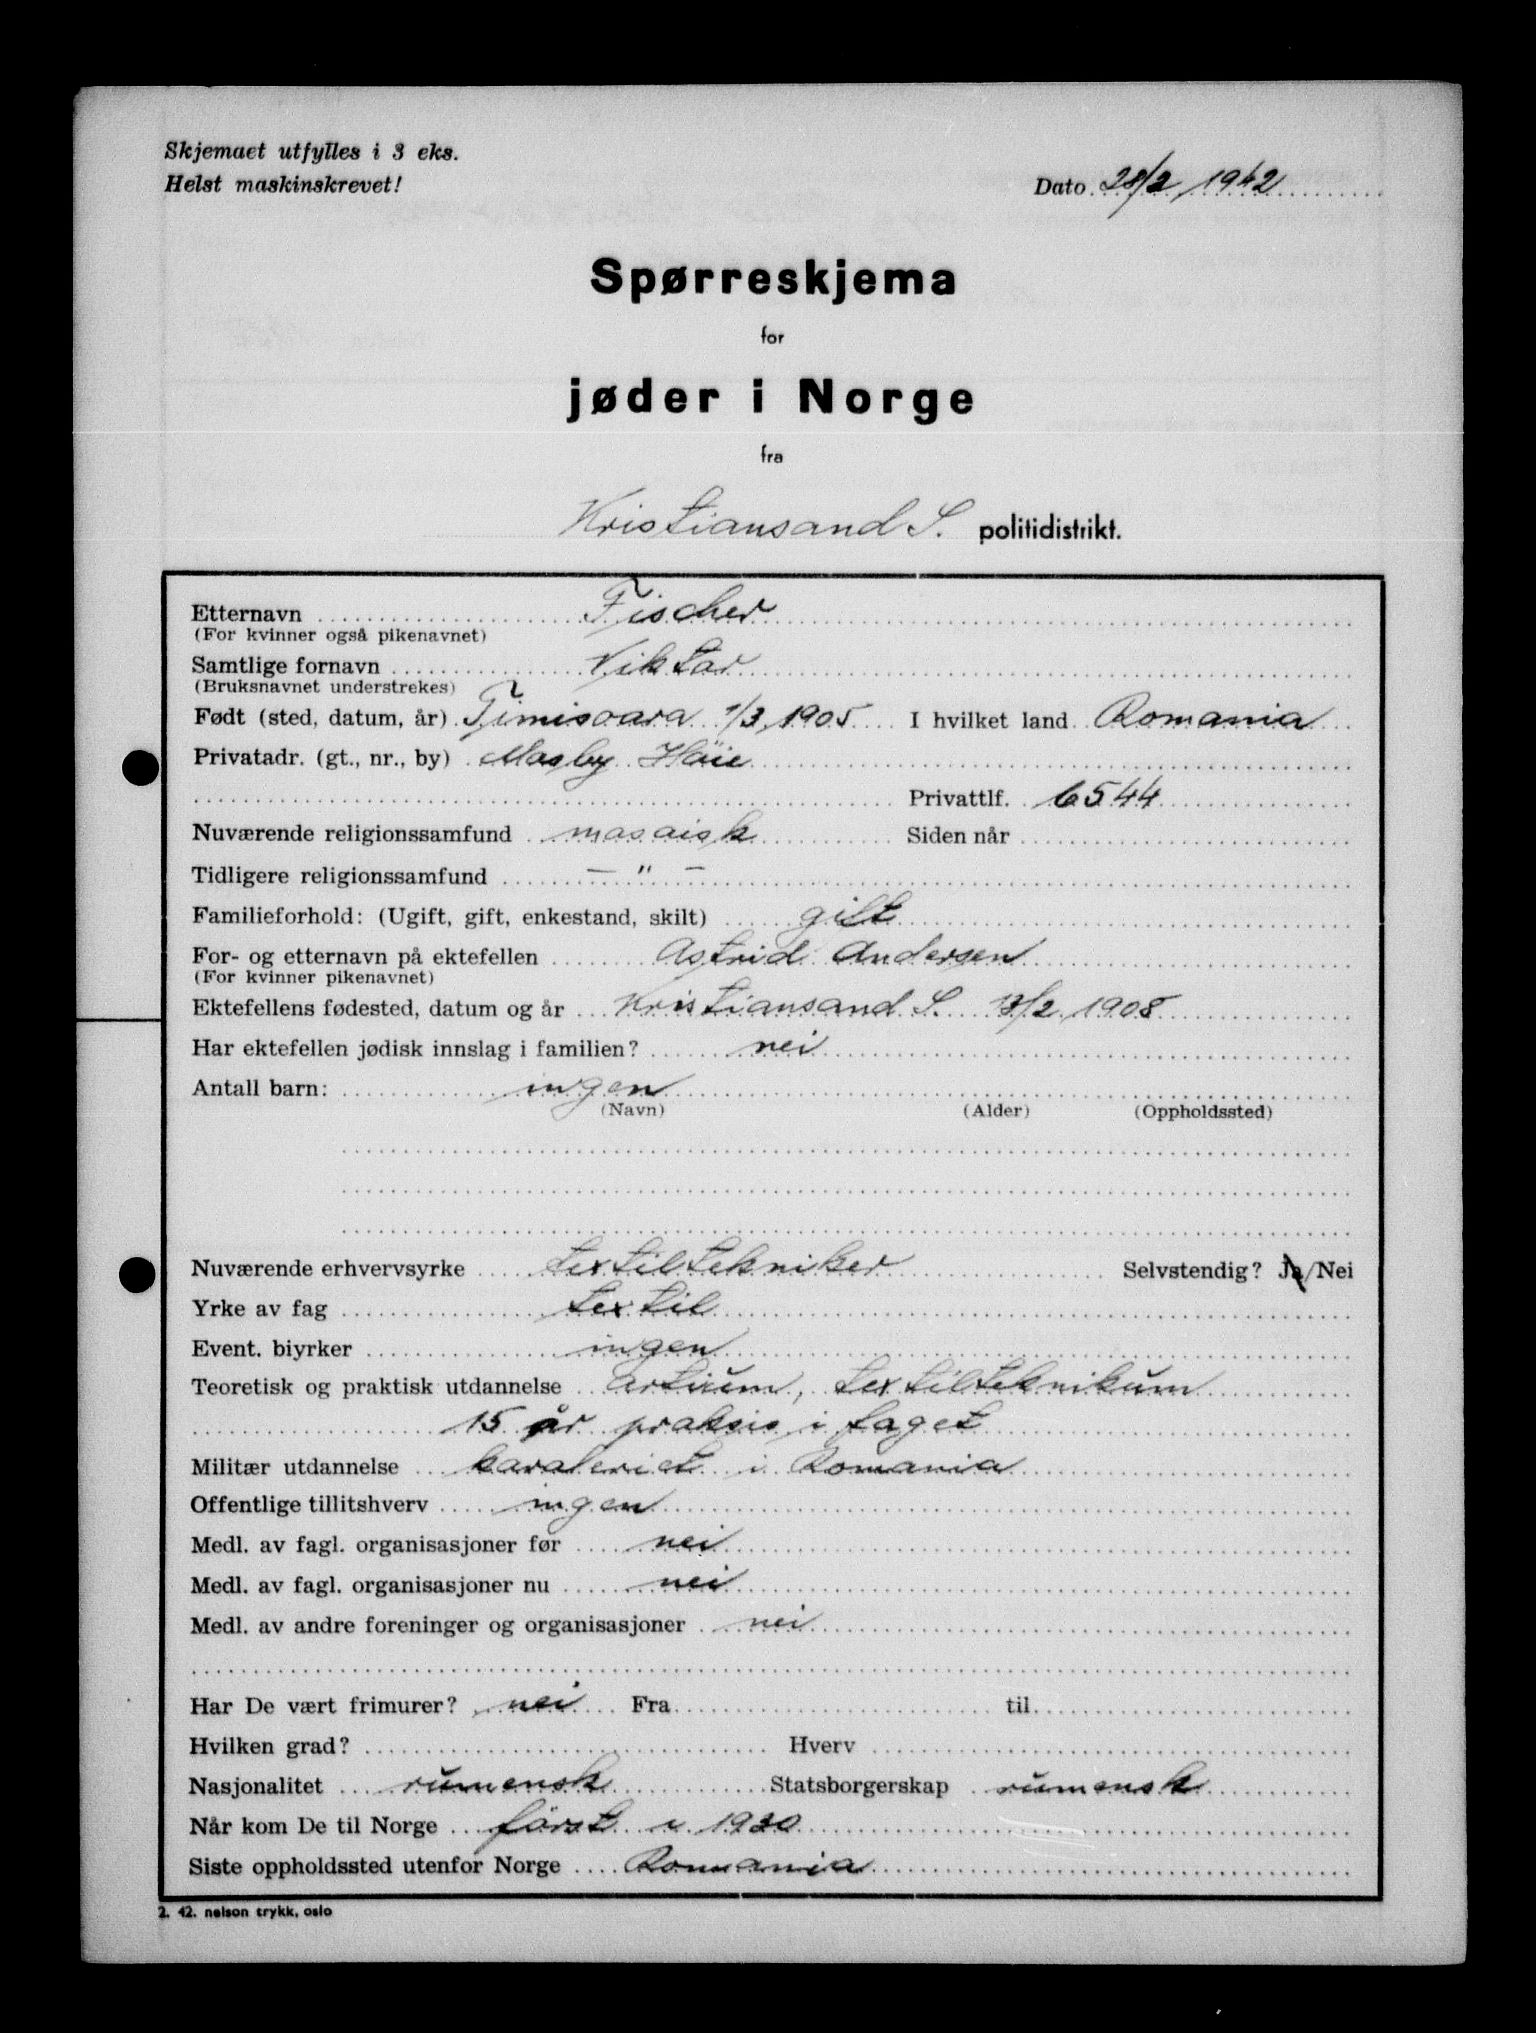 Skjemaet utfylles i 3 eks.
Helst maskinskrevet!
Dato 28/2 1942
Spørreskjema
for
jøder i Norge
fra
Kristiansand S. politidistrikt.
Etternavn Fischer
(For kvinner også pikenavnet)
Samtlige fornavn Viktor
(Bruksnavnet understrekes)
Født (sted, datum, år) Timisoara 1/3 1905 I hvilket land Romania
Privatadr. (gt., nr., by) Mosby Höie
Privattlf. 6544
Nuværende religionssamfund mosaisk Siden når
Tidligere religionssamfund — " —
Familieforhold: (Ugift, gift, enkestand, skilt) gift
For- og etternavn på ektefellen Astrid Andersen
(For kvinner pikenavnet)
Ektefellens fødested, datum og år Kristiansand S. /2 1908
Har ektefellen jødisk innslag i familien? nei
Antall barn: ingen
(Navn) (Alder) (Oppholdssted)
Nuværende erhvervsyrke textiltekniker Selvstendig? Ja/Nei
Yrke av fag textil
Event. biyrker ingen
Teoretisk og praktisk utdannelse artium, textilteknikum
15 år praksis i faget
Militær utdannelse kavaleriet i Romania
Offentlige tillitshverv ingen
Medl. av fagl. organisasjoner før nei
Medl. av fagl. organisasjoner nu nei
Medl. av andre foreninger og organisasjoner nei
Har De vært frimurer? nei Fra til
Hvilken grad? Hverv
Nasjonalitet rumensk Statsborgerskap rumensk
Når kom De til Norge först i 1930
Siste oppholdssted utenfor Norge Romania
2. 42. nelson trykk, oslo